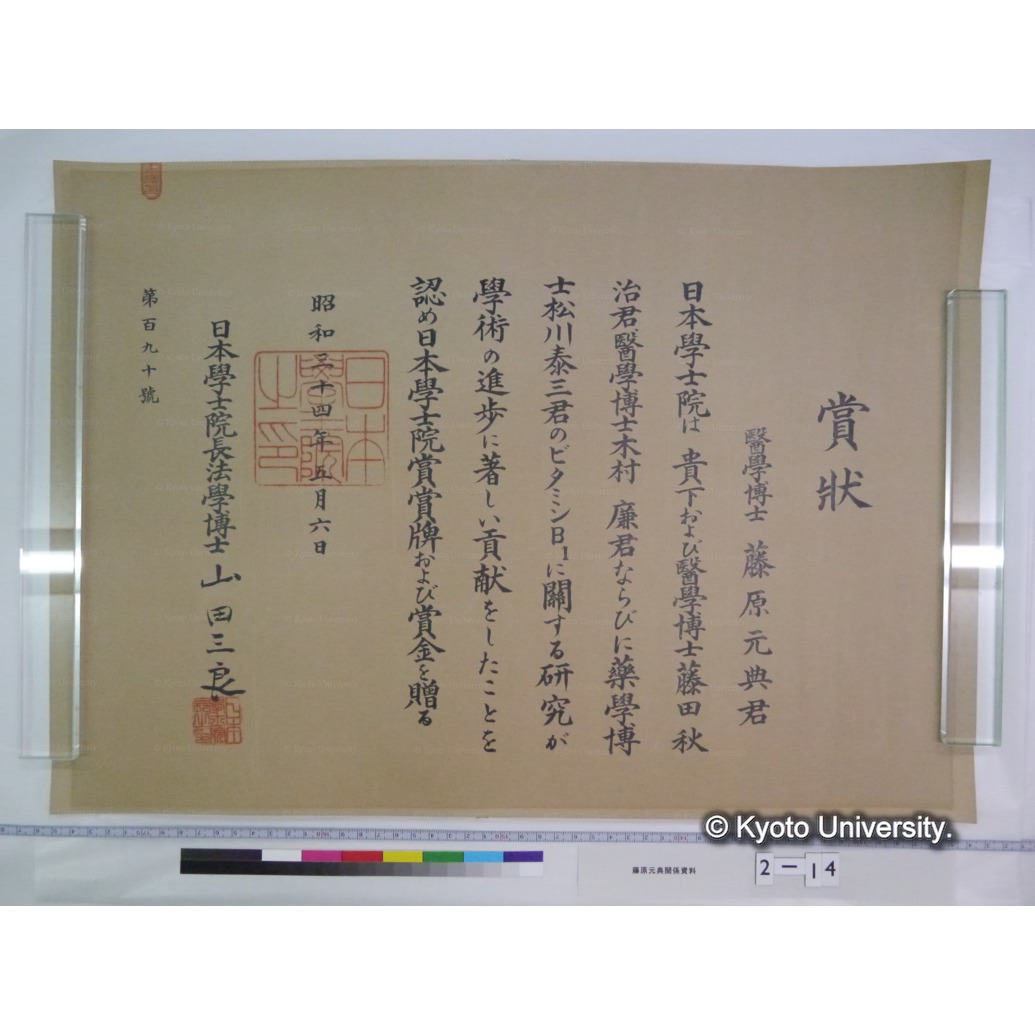 賞状
醫學博士 藤原元典君
日本學士院は貴下および醫學博士藤田秋
治君醫學博士木村 廉君ならびに藥學博
士松川泰三君のビタミンB₁に關する研究が
學術の進歩に著しい貢献をしたことを
認め日本學士院賞賞牌および賞金を贈る
昭和三十四年五月六日
日本學士院長法學博士山田三良
第百九十號
日本
學士院
之印
© Kyoto University.
藤原元典関係資料
2-14